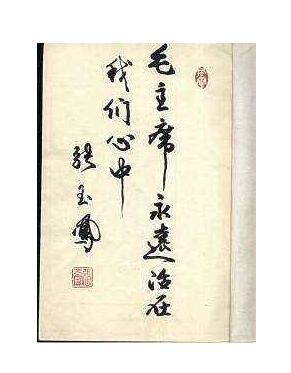 毛主席永远活在
我们心中
张玉凤